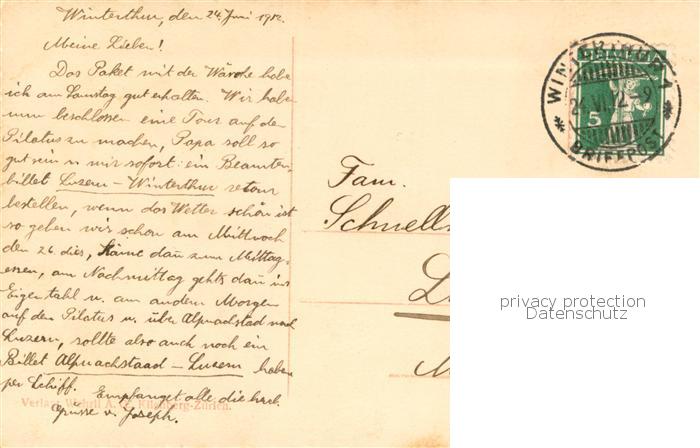 Winterthur, den 24. Juni 1912.
Meine Lieben!
Das Paket mit der Wäsche habe
ich am Samstag gut erhalten. Wir habe
nun beschlossen eine Tour auf den
Pilatus zu machen, Papa soll so
gut sein u mir sofort ein Beamten-
billet Luzern – Winterthur retour
bestellen, wenn das Wetter schön ist
so gehen wir schon am Mittwoch
den 26. dies, käme dan̄ zum Mittag-
essen, am Nachmittag gehts dan̄ ins
Eigenthal u. am andern Morgen
auf den Pilatus u. über Alpnachstad nach
Luzern, sollte also auch noch ein
Billet Alpnachstaad – Luzern haben
per Schiff. Empfanget alle die herzl.
Grüsse v. Joseph.
Verlag Wehrli A. G. Kilchberg-Zürich.
WINTERTHUR 1
24.VI.12.-9
BRIEFPOST
HELVETIA
5
Fam.
Schnell
L
privacy protection
Datenschutz